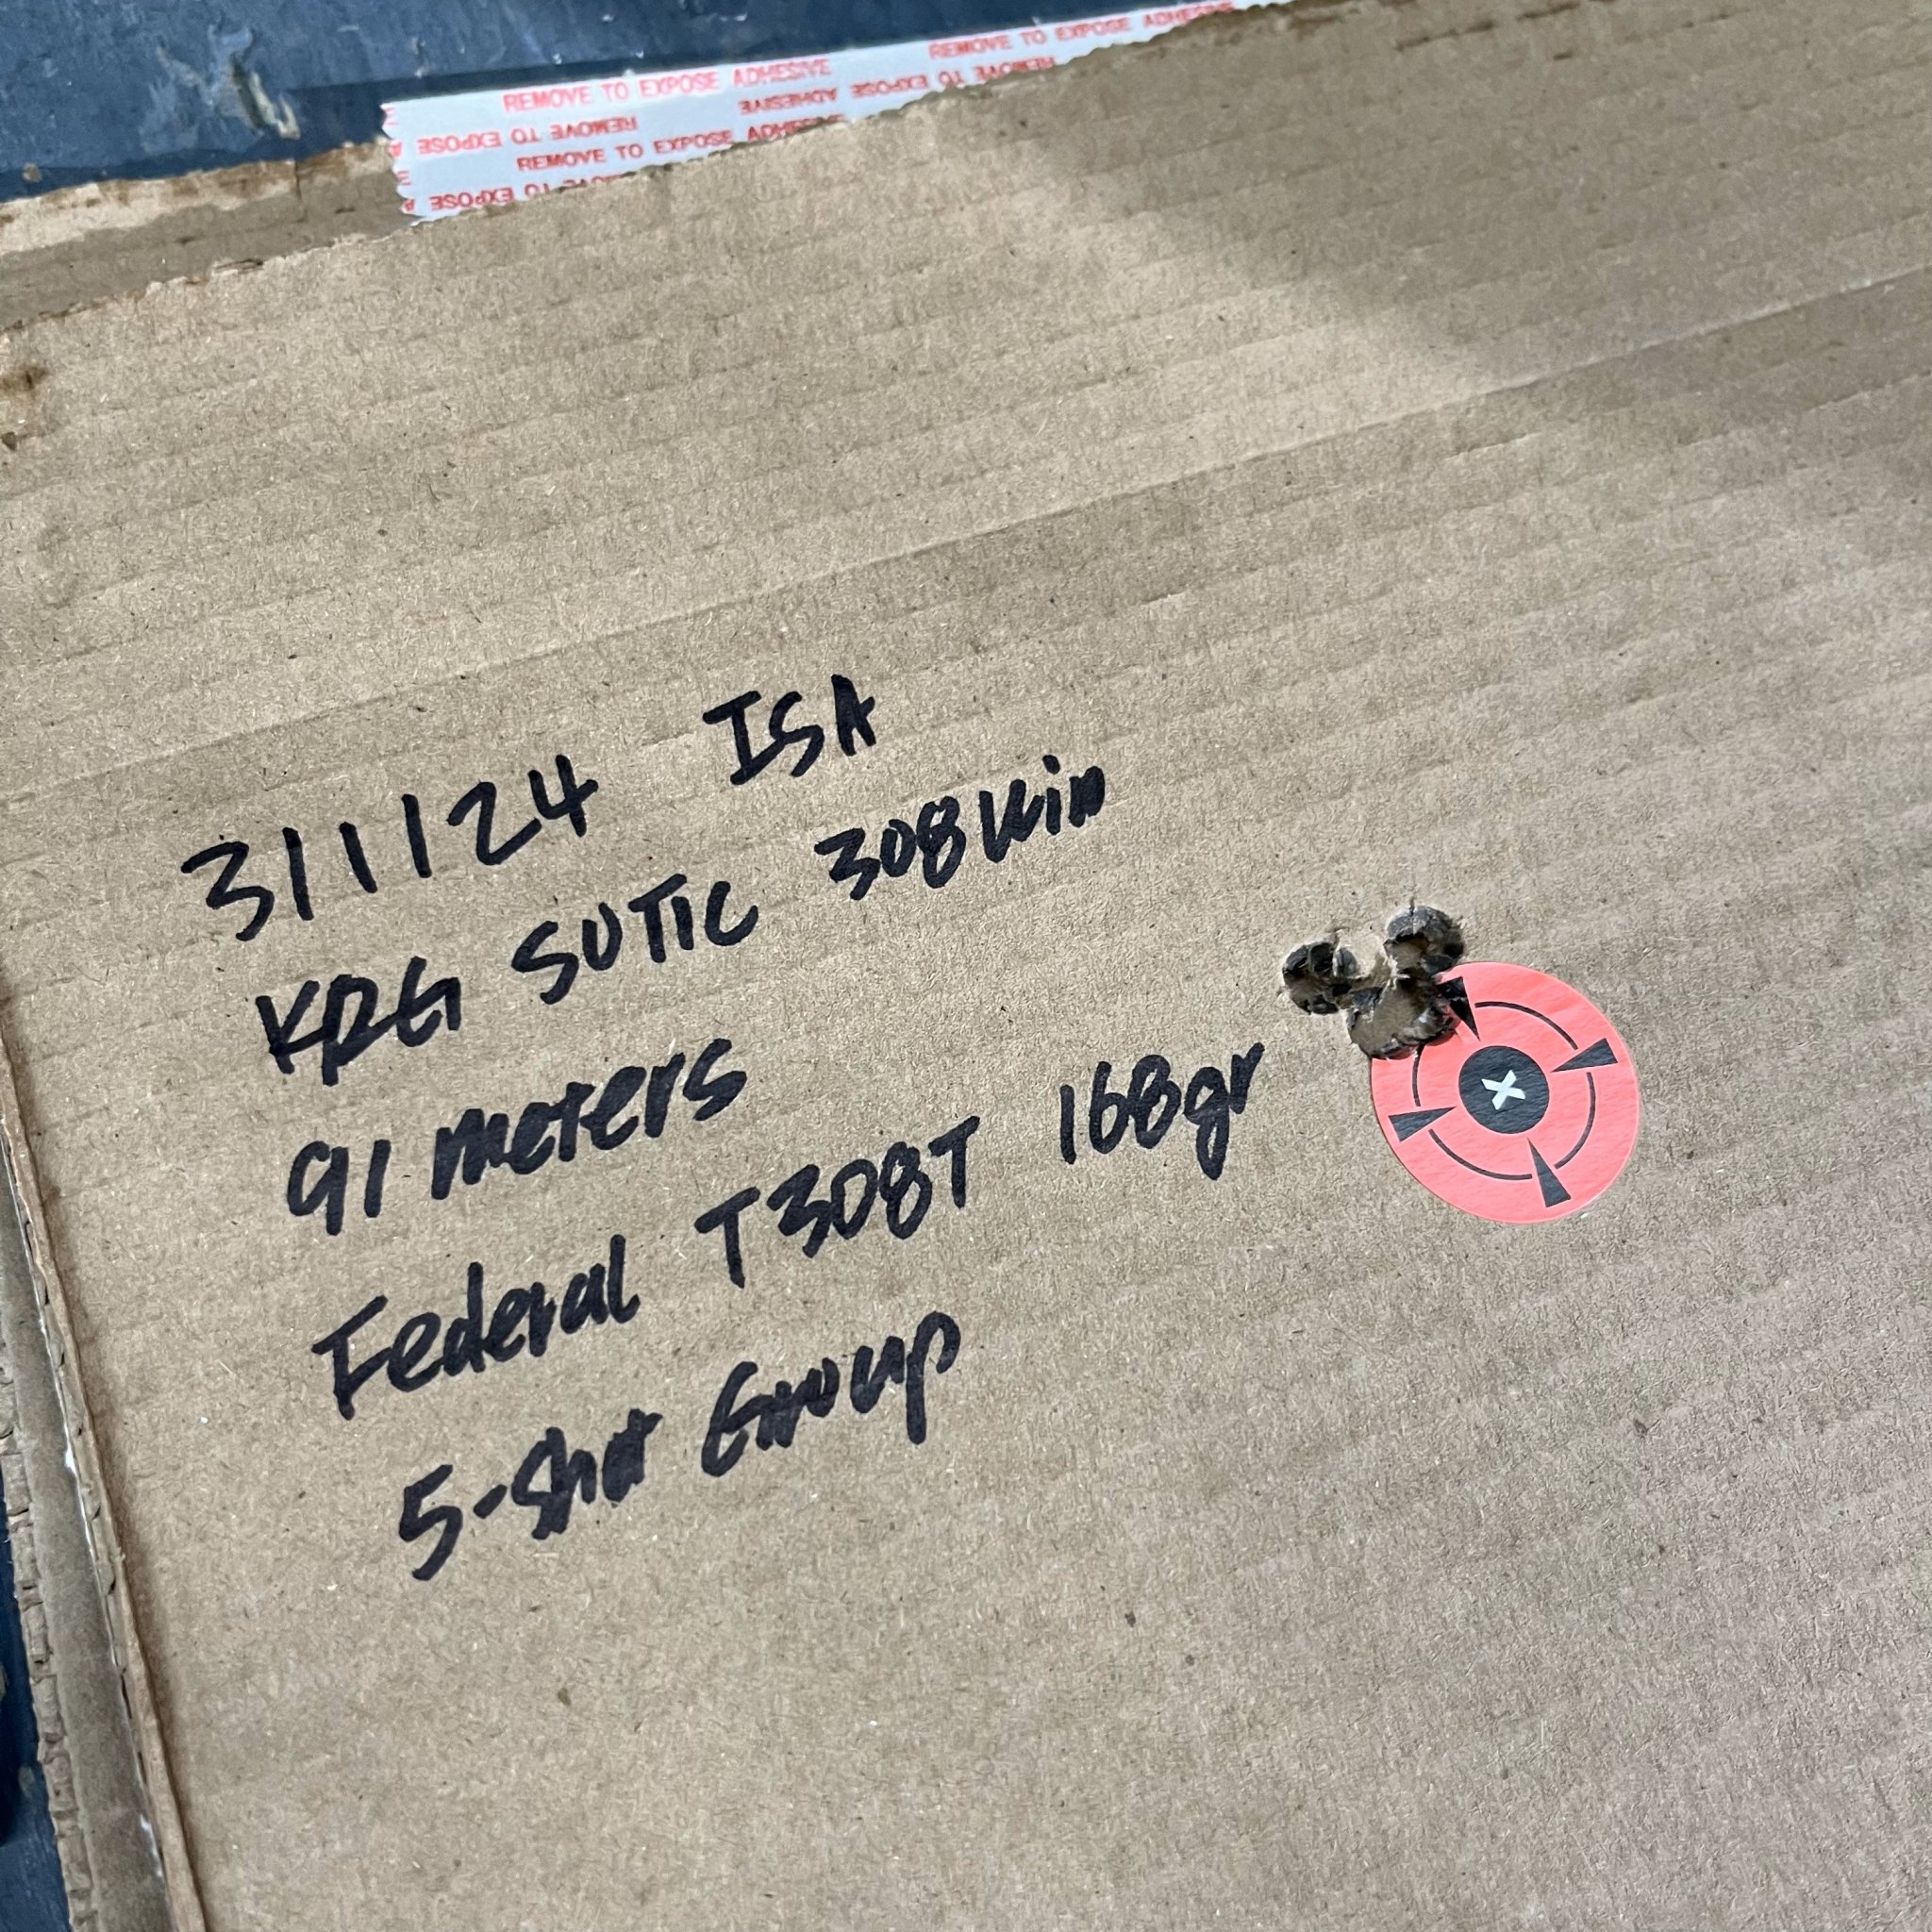 REMOVE TO EXPOSE ADHESIVE REMOVE TO EXPOSE ADHESIVE
REMOVE TO EXPOSE ADHESIVE REMOVE TO EXPOSE
REMOVE TO EXPOSE ADHESIVE
REMOVE TO EXPOSE
311124 ISA
KRG SOTIC 308 Win
91 meters
Federal T308T 168gr
5-Shot Group
X